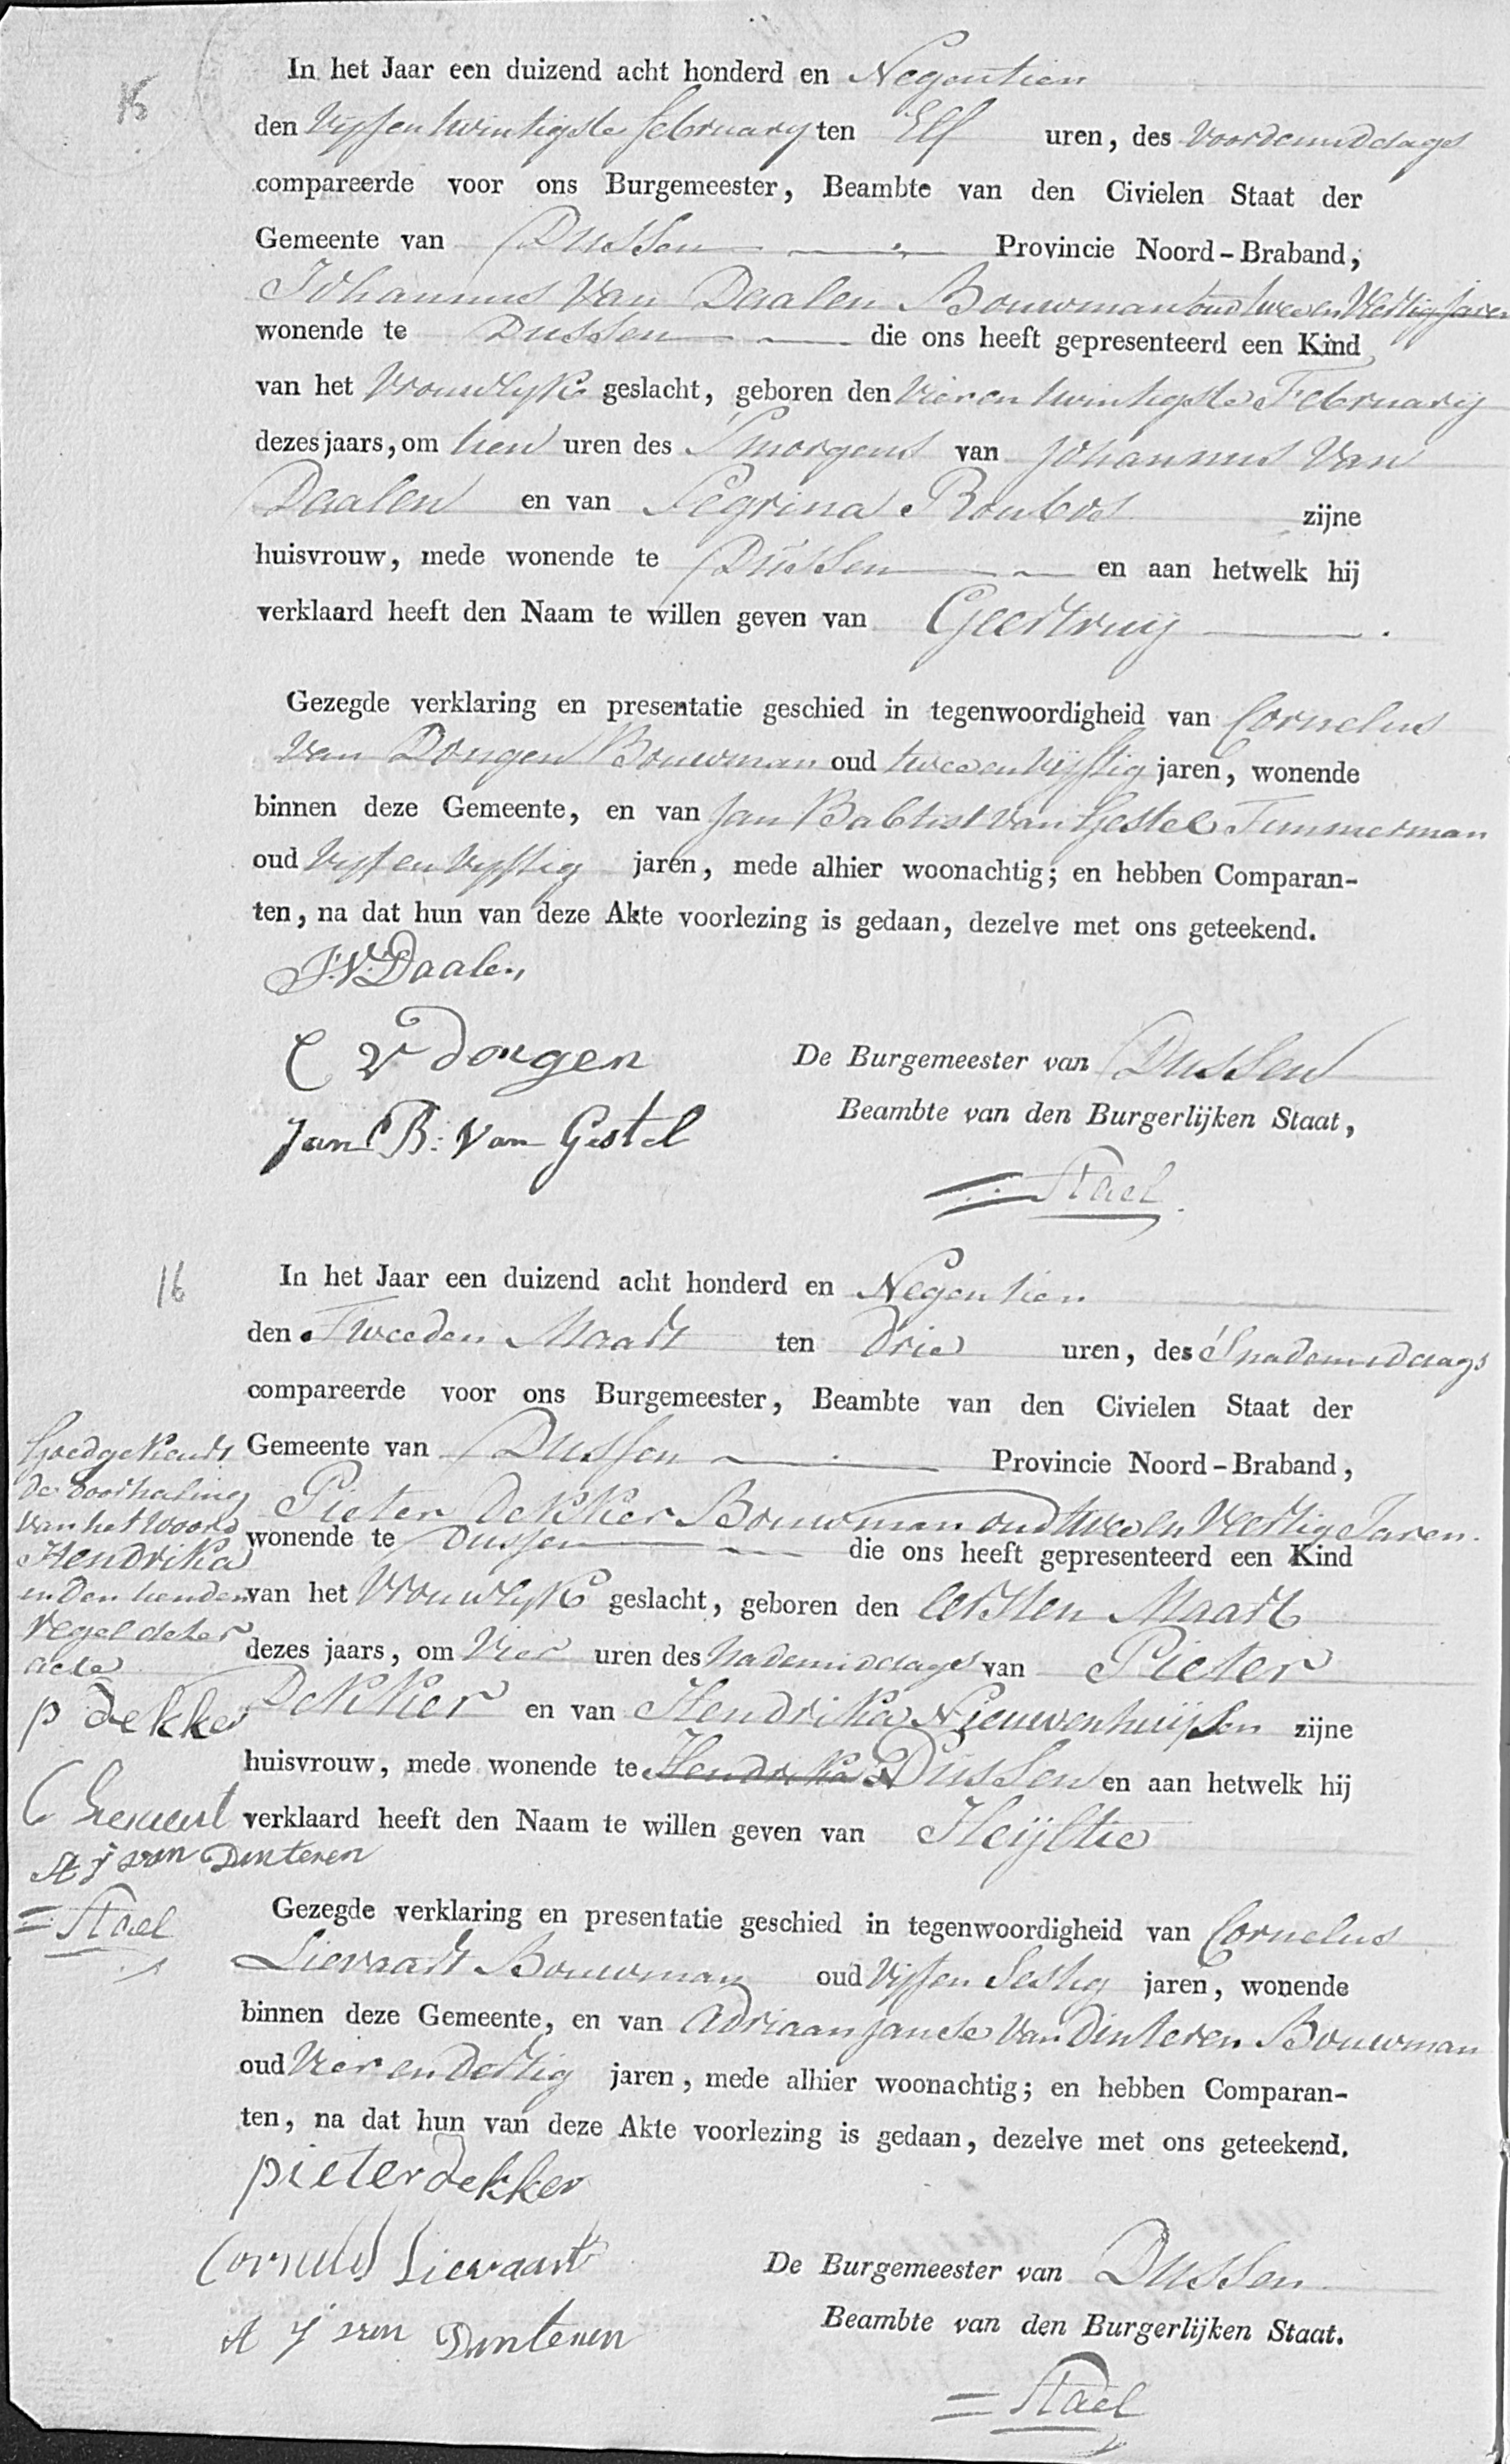 15
In het Jaar een duizend acht honderd en Negentien
den Vyfentwintigste february ten Elf uren, des Voordemiddags
compareerde voor ons Burgemeester, Beambte van den Civielen Staat der
Gemeente van Dussen Provincie Noord-Braband,
Johannes Van Daalen Bouwman oud tweeen Veertig Jaren
wonende te Dussen die ons heeft gepresenteerd een Kind
van het Vrouwlyke geslacht, geboren den Vierentwintigste February
dezes jaars, om tien uren des Smorgens van Johannes Van
Daalen en van Pegrina Roubos zijne
huisvrouw, mede wonende te Dussen en aan hetwelk hij
verklaard heeft den Naam te willen geven van Geertruy.
Gezegde verklaring en presentatie geschied in tegenwoordigheid van Cornelus
Van Dongen Bouwman oud tweeenvijftig jaren, wonende
binnen deze Gemeente, en van Jan Babtist van Gestel Timmerman
oud Vijfenvyftig jaren, mede alhier woonachtig; en hebben Comparan-
ten, na dat hun van deze Akte voorlezing is gedaan, dezelve met ons geteekend.
J. V. Daalen
C v dongen
De Burgemeester van Dussen
Beambte van den Burgerlijken Staat,
Jan B: van Gestel
Stael
16
In het Jaar een duizend acht honderd en Negentien
den Tweeden Maart ten Drie uren, des Snademiddags
compareerde voor ons Burgemeester, Beambte van den Civielen Staat der
Gemeente van Dussen Provincie Noord-Braband,
Pieter Dekker Bouwman oud tweeen Veertig Jaren.
wonende te Dussen die ons heeft gepresenteerd een Kind
van het Vrouwlyke geslacht, geboren den eersten Maart
dezes jaars, om Vier uren des Nademiddags van Pieter
Dekker en van Hendrika Nieuwenhuijsen zijne
huisvrouw, mede wonende te Hendrika N Dussen en aan hetwelk hij
verklaard heeft den Naam te willen geven van Heijltie
Goedgekeurt
de doorhaling
van het woord
Hendrika
in den tienden
regel deter
acte
p dekker
C lievaart
A j van Dinteren
Stael
Gezegde verklaring en presentatie geschied in tegenwoordigheid van Cornelus
Lievaart Bouwman oud Vijfen Sestig jaren, wonende
binnen deze Gemeente, en van Adriaan Janse Van Dinteren Bouwman
oud Vier en Dertig jaren, mede alhier woonachtig; en hebben Comparan-
ten, na dat hun van deze Akte voorlezing is gedaan, dezelve met ons geteekend.
pieter dekker
Cornelis Lievaart
De Burgemeester van Dussen
Beambte van den Burgerlijken Staat.
A j van Dinteren
Stael